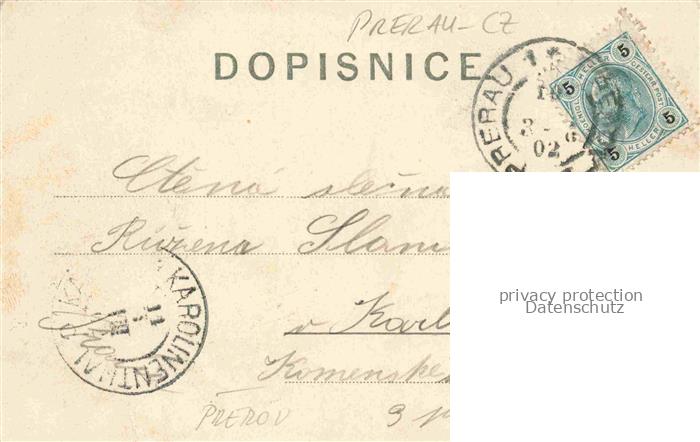 PRERAU-CZ
DOPISNICE
PRERAU 1
02
5 HELLER 5
OESTERR. POST
5 HELLER 5
Ctěná slečna
Růžena Slam
v Karl
Komenske
3 p
KAROLINENTHAL
11
PREROV
privacy protection
Datenschutz